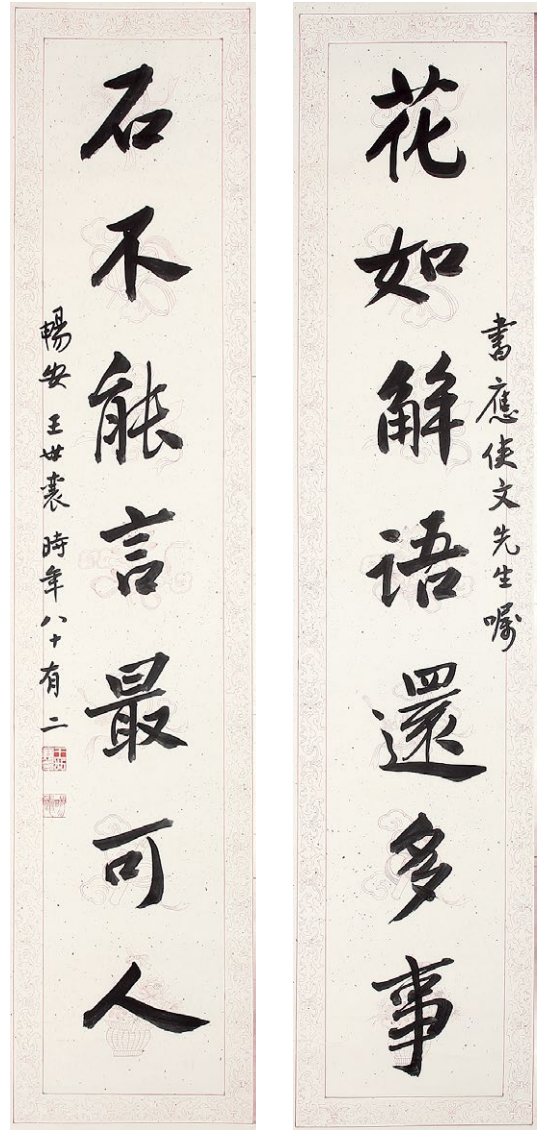 花如解语還多事
書應使文先生嘱
石不能言最可人
暢安 王世襄 時年八十有二